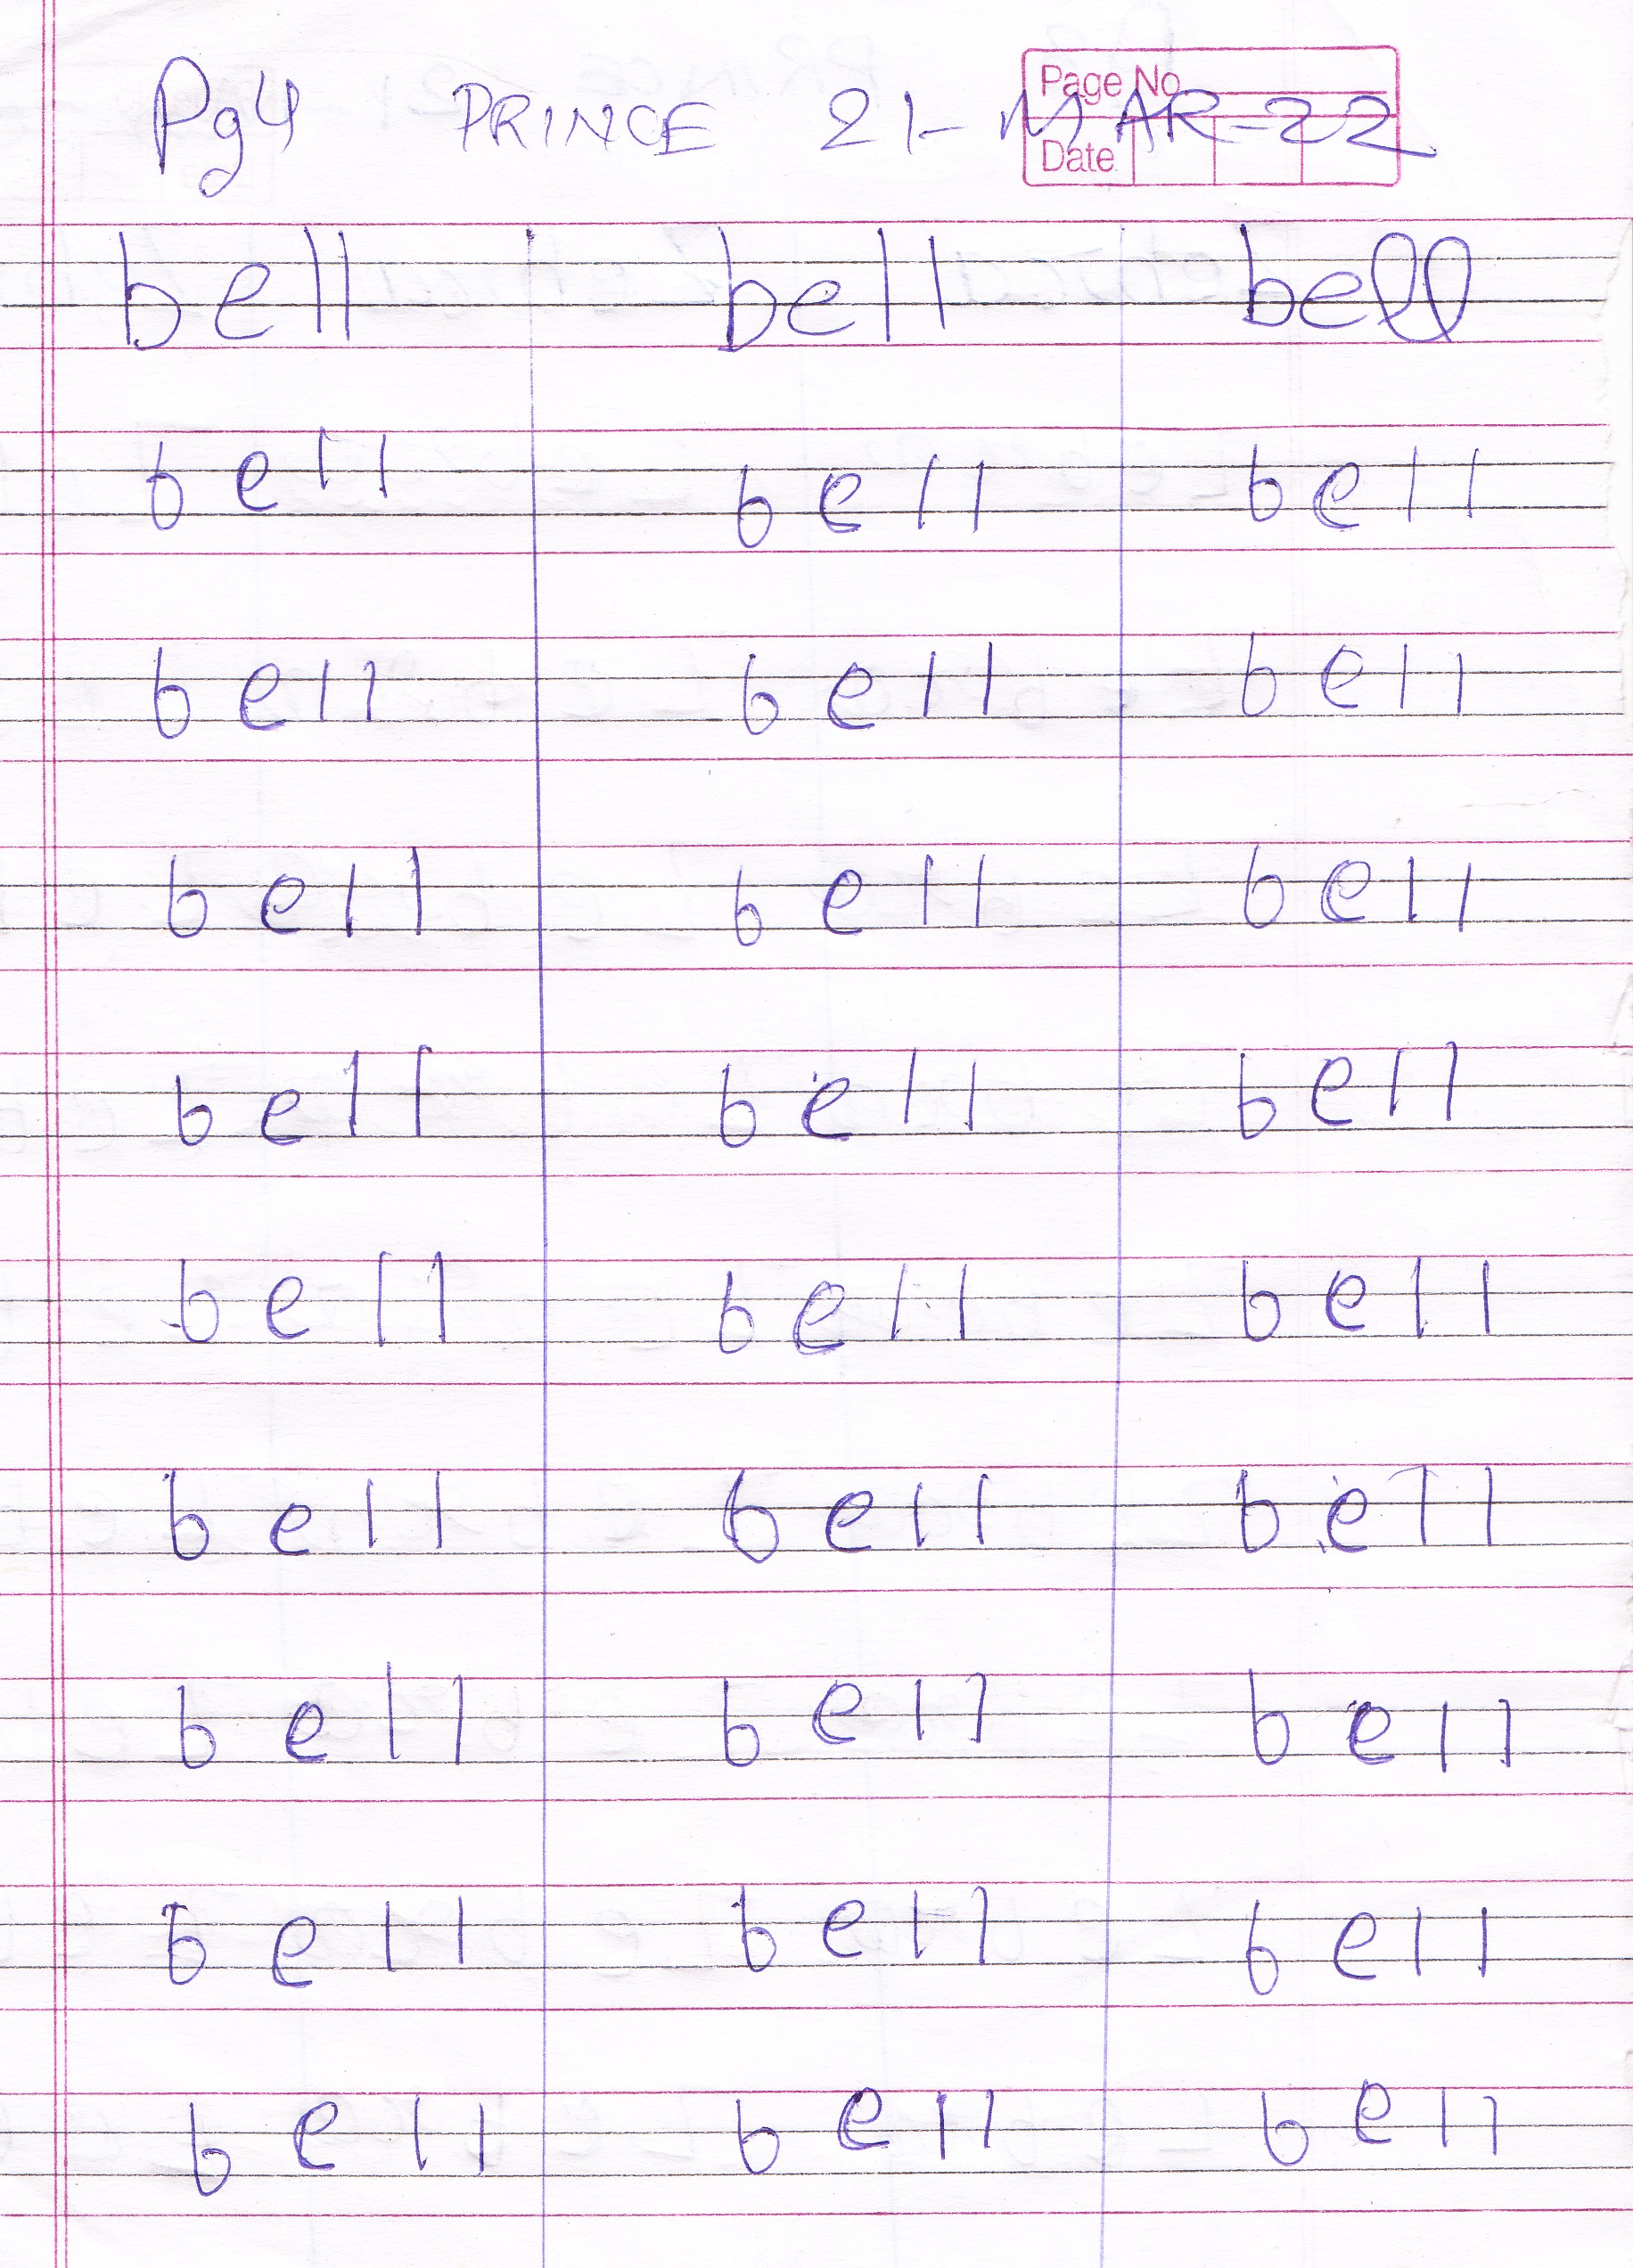 Pg4 PRINCE 21-MAR-22
Page No
Date
bell bell bell
bell bell bell
bell bell bell
bell bell bell
bell bell bell
bell bell bell
bell bell bell
bell bell bell
bell bell bell
bell bell bell